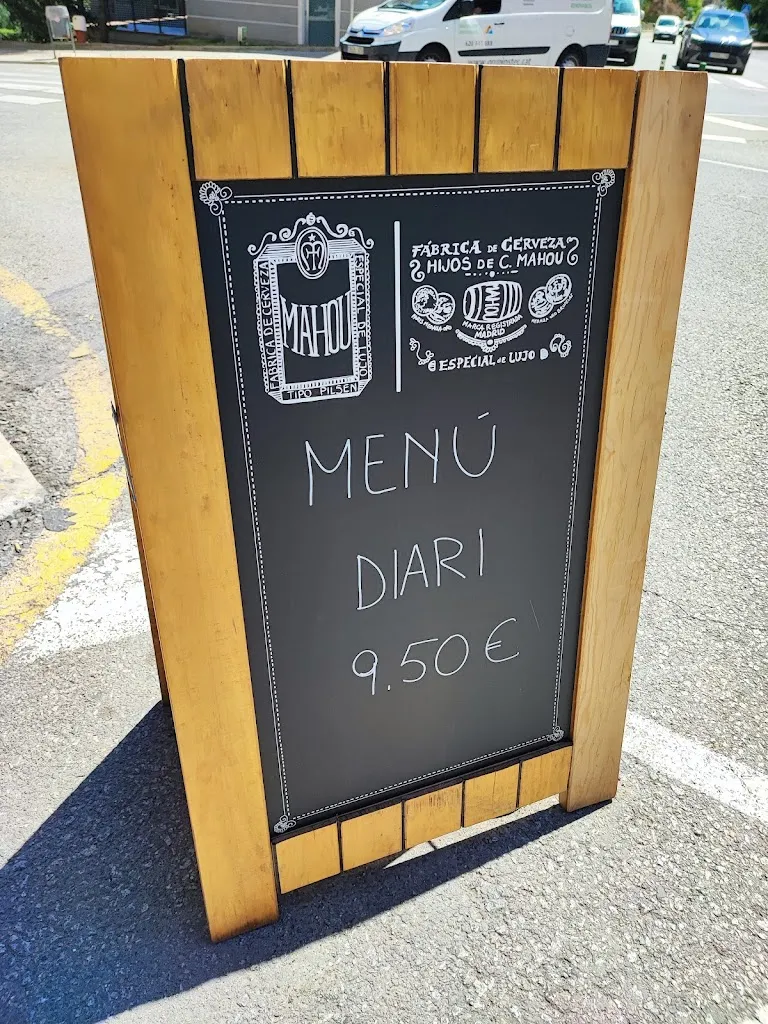 FÁBRICA DE CERVEZA
MAHOU
ESPECIAL DE LUJO
TIPO PILSEN
FÁBRICA DE CERVEZA
HIJOS DE C. MAHOU
MAHOU
MARCA REGISTRADA
MADRID
ESPECIAL DE LUJO
MENÚ
DIARI
9.50€